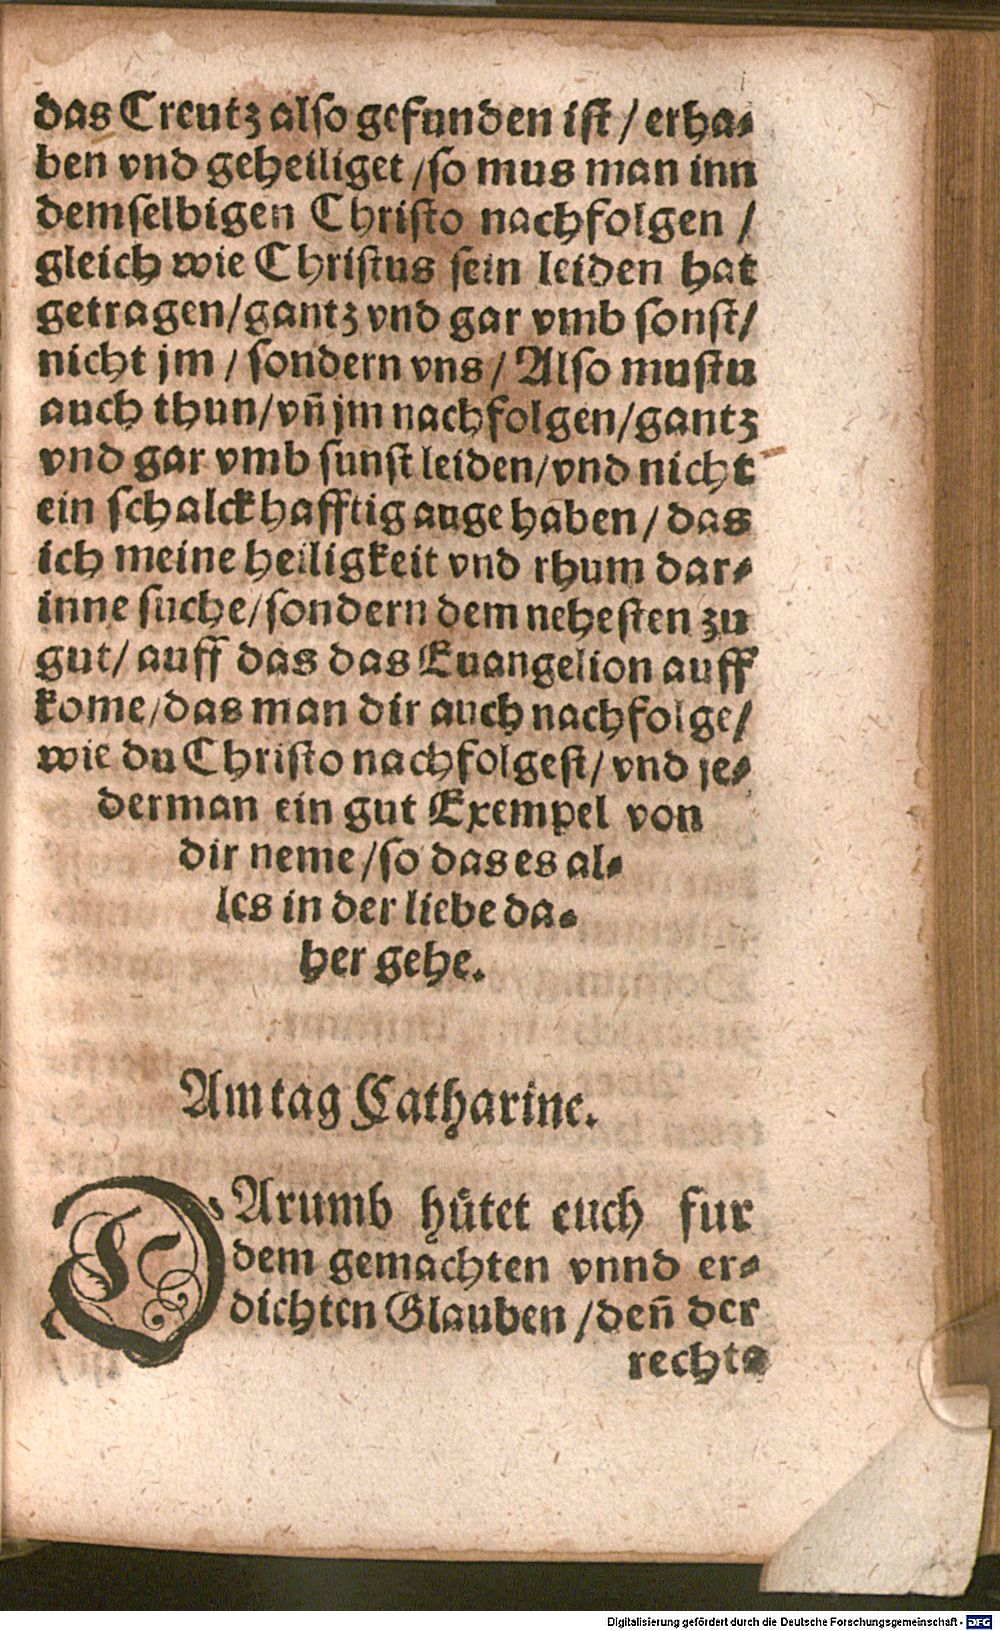 das Creutz also gefunden ist / erha⸗
ben vnd geheiliget / so mus man inn
demselbigen Christo nachfolgen /
gleich wie Christus sein leiden hat
getragen / gantz vnd gar vmb sonst /
nicht jm / sondern vns / Also mustu
auch thun / vn̄ jm nachfolgen / gantz
vnd gar vmb sunst leiden / vnd nicht
ein schalckhafftig auge haben / das
ich meine heiligkeit vnd rhum dar⸗
inne suche / sondern dem nehesten zu
gut / auff das das Euangelion auff
kome / das man dir auch nachfolge /
wie du Christo nachfolgest / vnd je⸗
derman ein gut Exempel von
dir neme / so das es al⸗
les in der liebe da⸗
her gehe.
Am tag Catharine.
DArumb hütet euch fur
dem gemachten vnnd er⸗
dichten Glauben / den̄ der
rechte
Digitalisierung gefördert durch die Deutsche Forschungsgemeinschaft - DFG